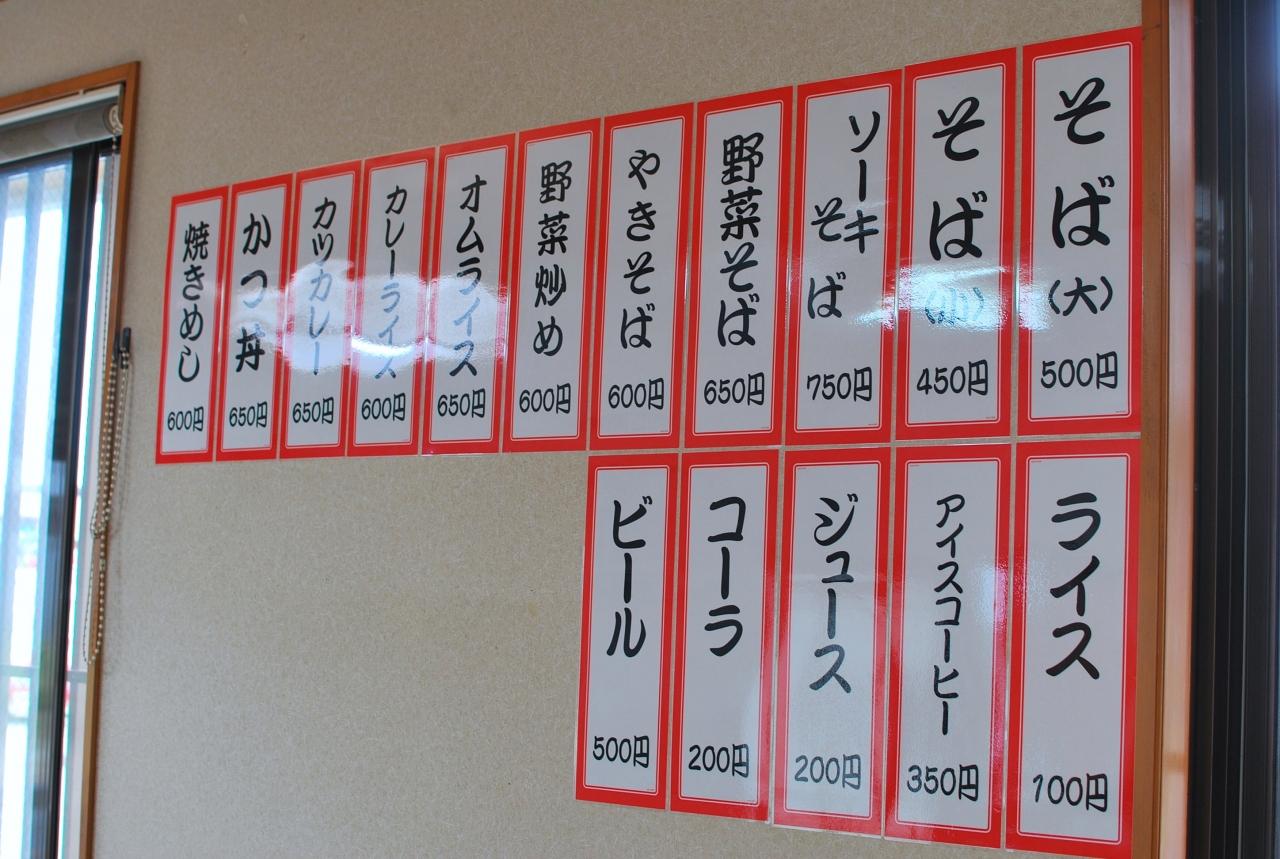 そば(大)
500円
そば(小)
450円
ソーキ
そば
750円
野菜そば
650円
やきそば
600円
野菜炒め
600円
オムライス
650円
カレーライス
600円
カツカレー
650円
かつ丼
650円
焼きめし
600円
ライス
100円
アイスコーヒー
350円
ジュース
200円
コーラ
200円
ビール
500円